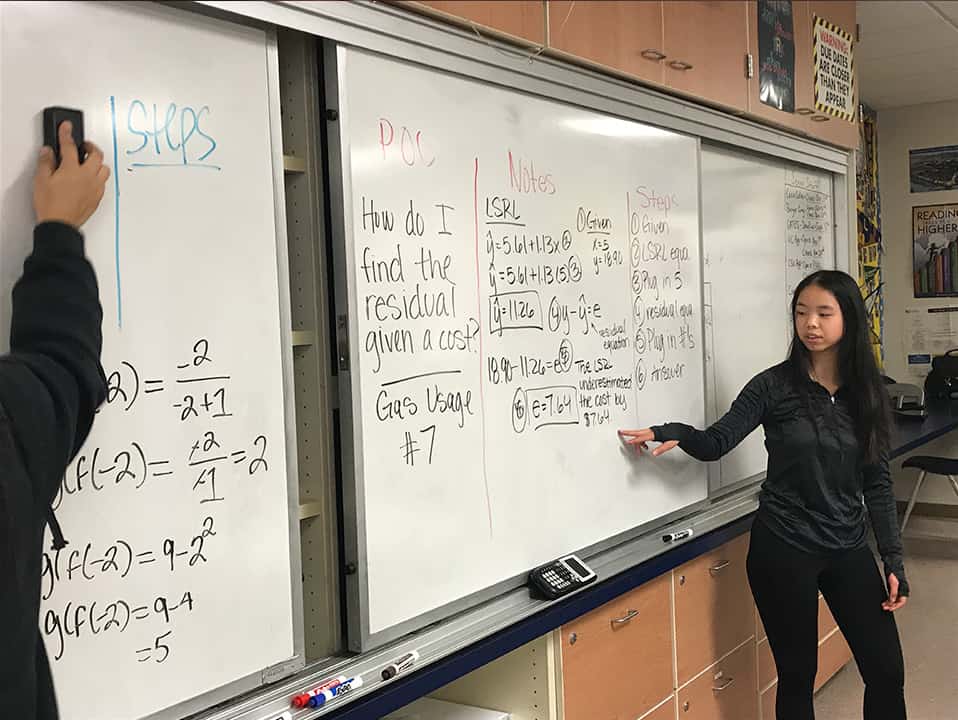 Steps
-2
-2+1
f(-2) = -2/-1 = 2
g(f(-2) = 9-2²
g(f(-2) = 9-4
=5
POC
How do I
find the
residual
given a cost?
Gas Usage
#7
Notes
LSRL
ŷ=5.61+1.13x ②
ŷ=5.61+1.13(5) ③
ŷ=11.26
④ y-ŷ=e
residual
equation
18.90-11.26=e ⑤
⑥ e=7.64
① Given
x=5
y=18.90
The LSRL
underestimated
the cost by
$7.64
Steps
① Given
② LSRL equa.
③ Plug in 5
④ residual equa
⑤ Plug in #'s
⑥ Answer
WARNING:
DUE DATES
ARE CLOSER
THAN THEY
APPEAR
READING
HIGHER